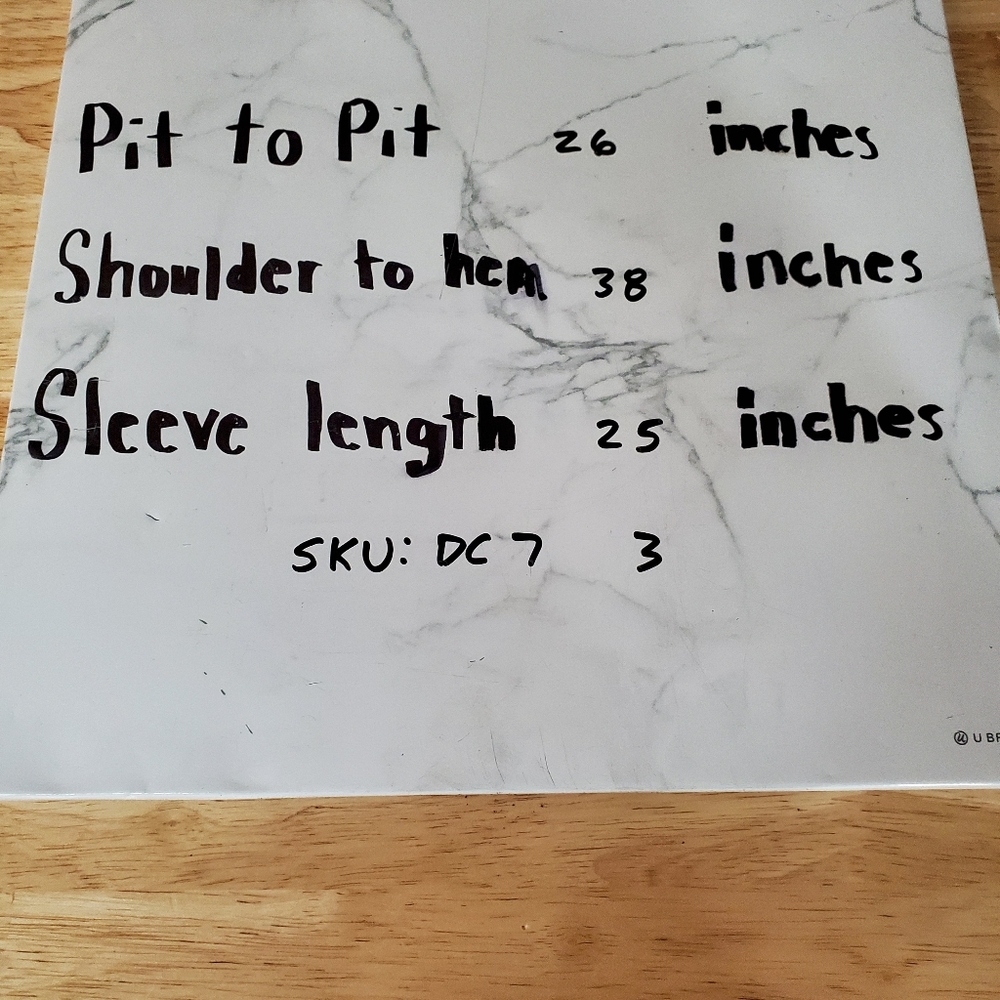 Pit to Pit 26 inches
Shoulder to hem 38 inches
Sleeve length 25 inches
SKU: DC 7 3
U